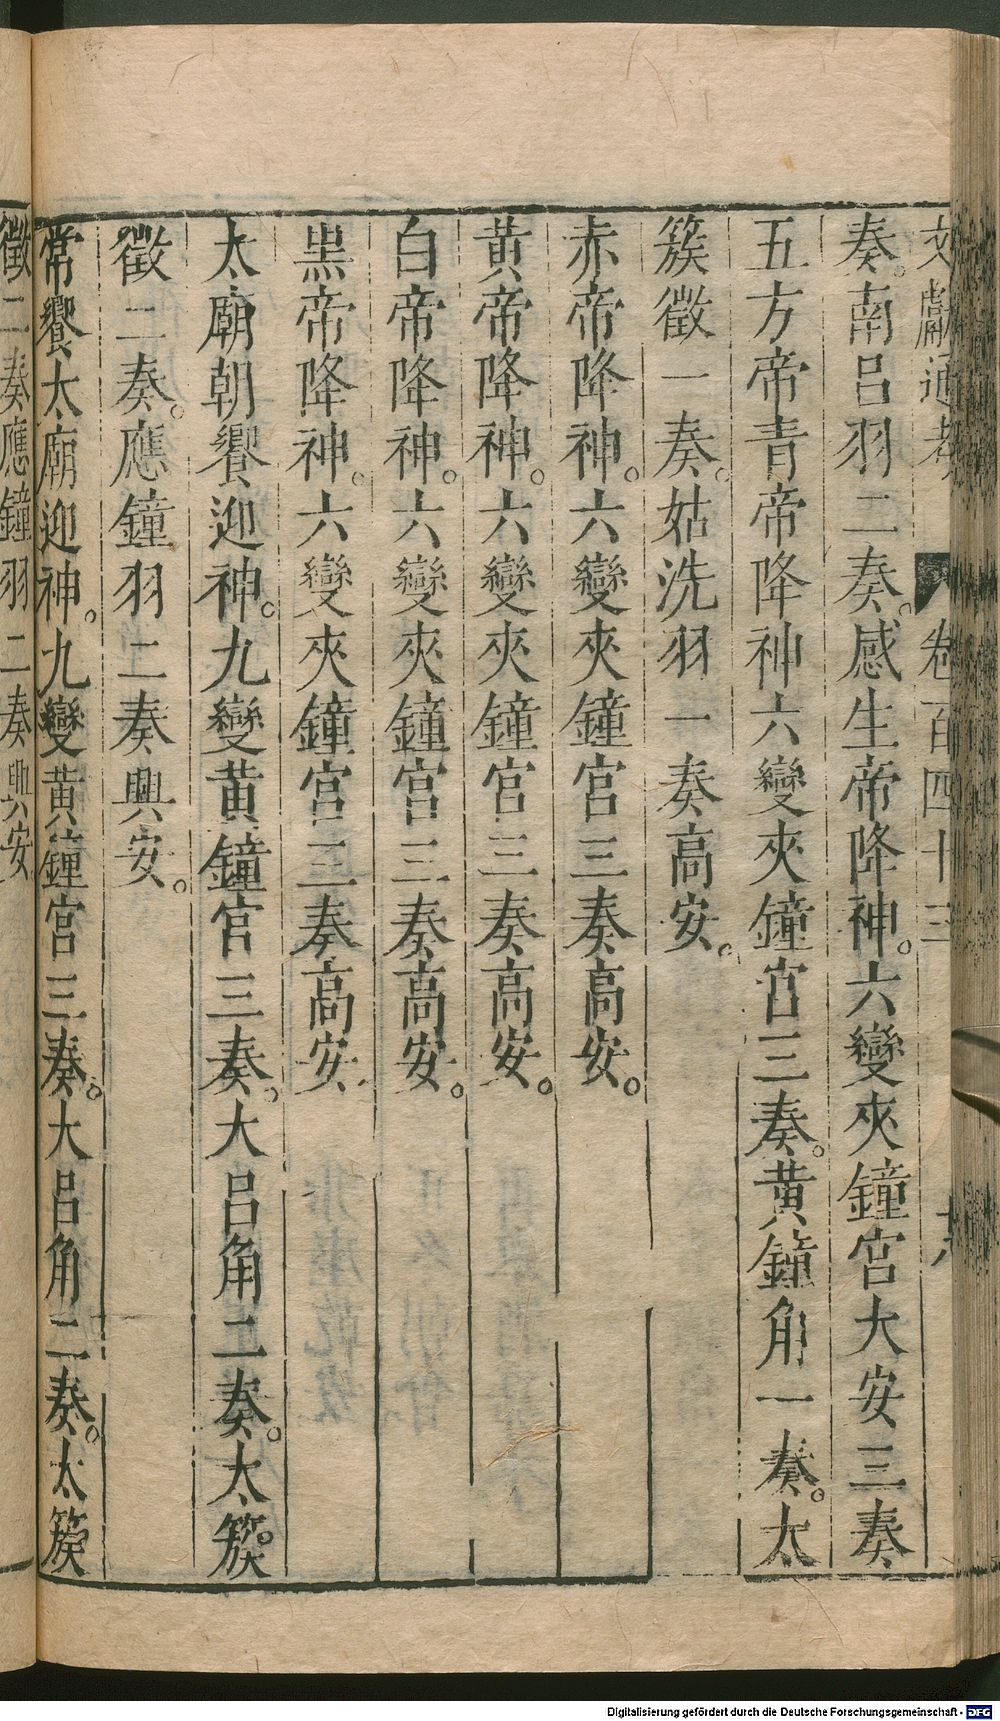 文獻通考 卷百四十三 十六
奏。南呂羽二奏。感生帝降神。六變夾鐘宮大安三奏
五方帝青帝降神六變夾鐘宮三奏。黃鐘角一奏。太
簇徵一奏。姑洗羽一奏高安。
赤帝降神。六變夾鐘宮三奏高安。
黃帝降神。六變夾鐘宮三奏高安。
白帝降神。六變夾鐘宮三奏高安。
黑帝降神。六變夾鐘宮三奏高安
太廟朝饗迎神。九變黃鐘宮三奏。大呂角二奏。太簇。
徵二奏。應鐘羽二奏興安。
常饗太廟迎神。九變黃鐘宮三奏。大呂角二奏。太簇
徵二奏應鐘羽二奏興安
Digitalisierung gefördert durch die Deutsche Forschungsgemeinschaft - DFG